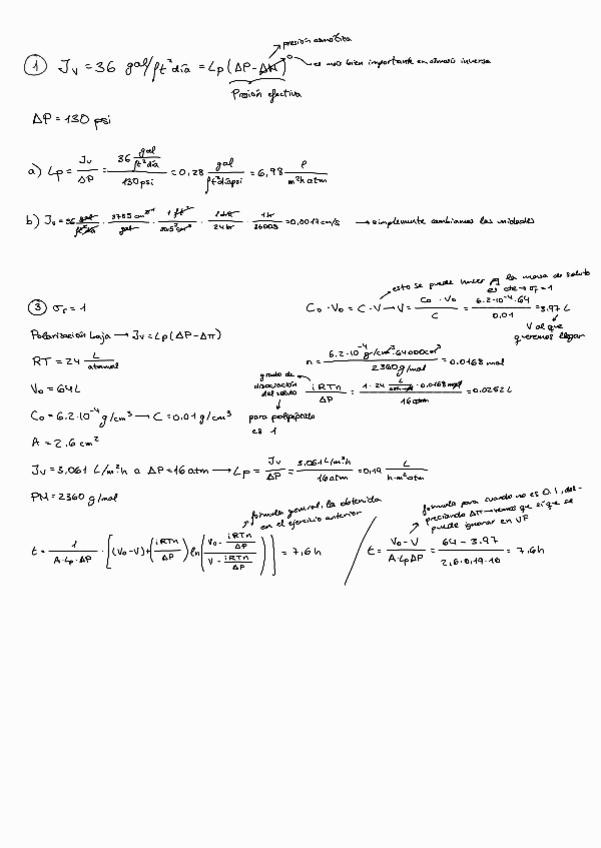 presión osmótica
① Jv = 36 gal/ft² día = Lp (ΔP - Δπ)⁰ → es más bien importante en ósmosis inversa
Presión efectiva
ΔP = 130 psi
a) Lp = Jv/ΔP = (36 gal/ft² día)/(130 psi) = 0,28 gal/(ft² día psi) = 6,98 l/(m² h atm)
b) Jv = 36 gal/(ft² día) · 3785 cm³/gal · 1 ft²/30.5² cm² · 1 día/24 hr · 1 hr/3600 s = 0,0017 cm/s → simplemente cambiamos las unidades
③ σr = 1
esto se puede hacer pq la masa de soluto
es cte → σr = 1
Co · Vo = C · V → V = (Co · Vo)/C = (6.2·10⁻⁴ · 64)/0,01 = 3.97 L
V al que
queremos llegar
Polarización baja → Jv = Lp (ΔP - Δπ)
RT = 24 L/(atm mol)
n = (6.2·10⁻⁴ g/cm³ · 64000 cm³)/(2360 g/mol) = 0.0168 mol
grado de
disociación
del soluto
iRTn/ΔP = (1 · 24 L/(atm·mol) · 0.0168 mol)/(16 atm) = 0.0252 L
para polipéptido
es 1
Vo = 64 L
Co = 6.2·10⁻⁴ g/cm³ → C = 0,01 g/cm³
A = 2,6 cm²
Jv = 3,061 L/m² h a ΔP = 16 atm → Lp = Jv/ΔP = (3,061 L/m² h)/(16 atm) = 0,19 L/(h·m² atm)
PM = 2360 g/mol
fórmula general, la obtenida
en el ejercicio anterior
t = 1/(A·Lp·ΔP) · [(Vo - V) + (iRTn/ΔP) ln((Vo - iRTn/ΔP)/(V - iRTn/ΔP))] = 7,6 h
fórmula para cuando no es O.I, des-
preciando Δπ → vemos que sí que se
puede ignorar en UF
t = (Vo - V)/(A·Lp·ΔP) = (64 - 3.97)/(2,6·0,19·16) = 7,6 h